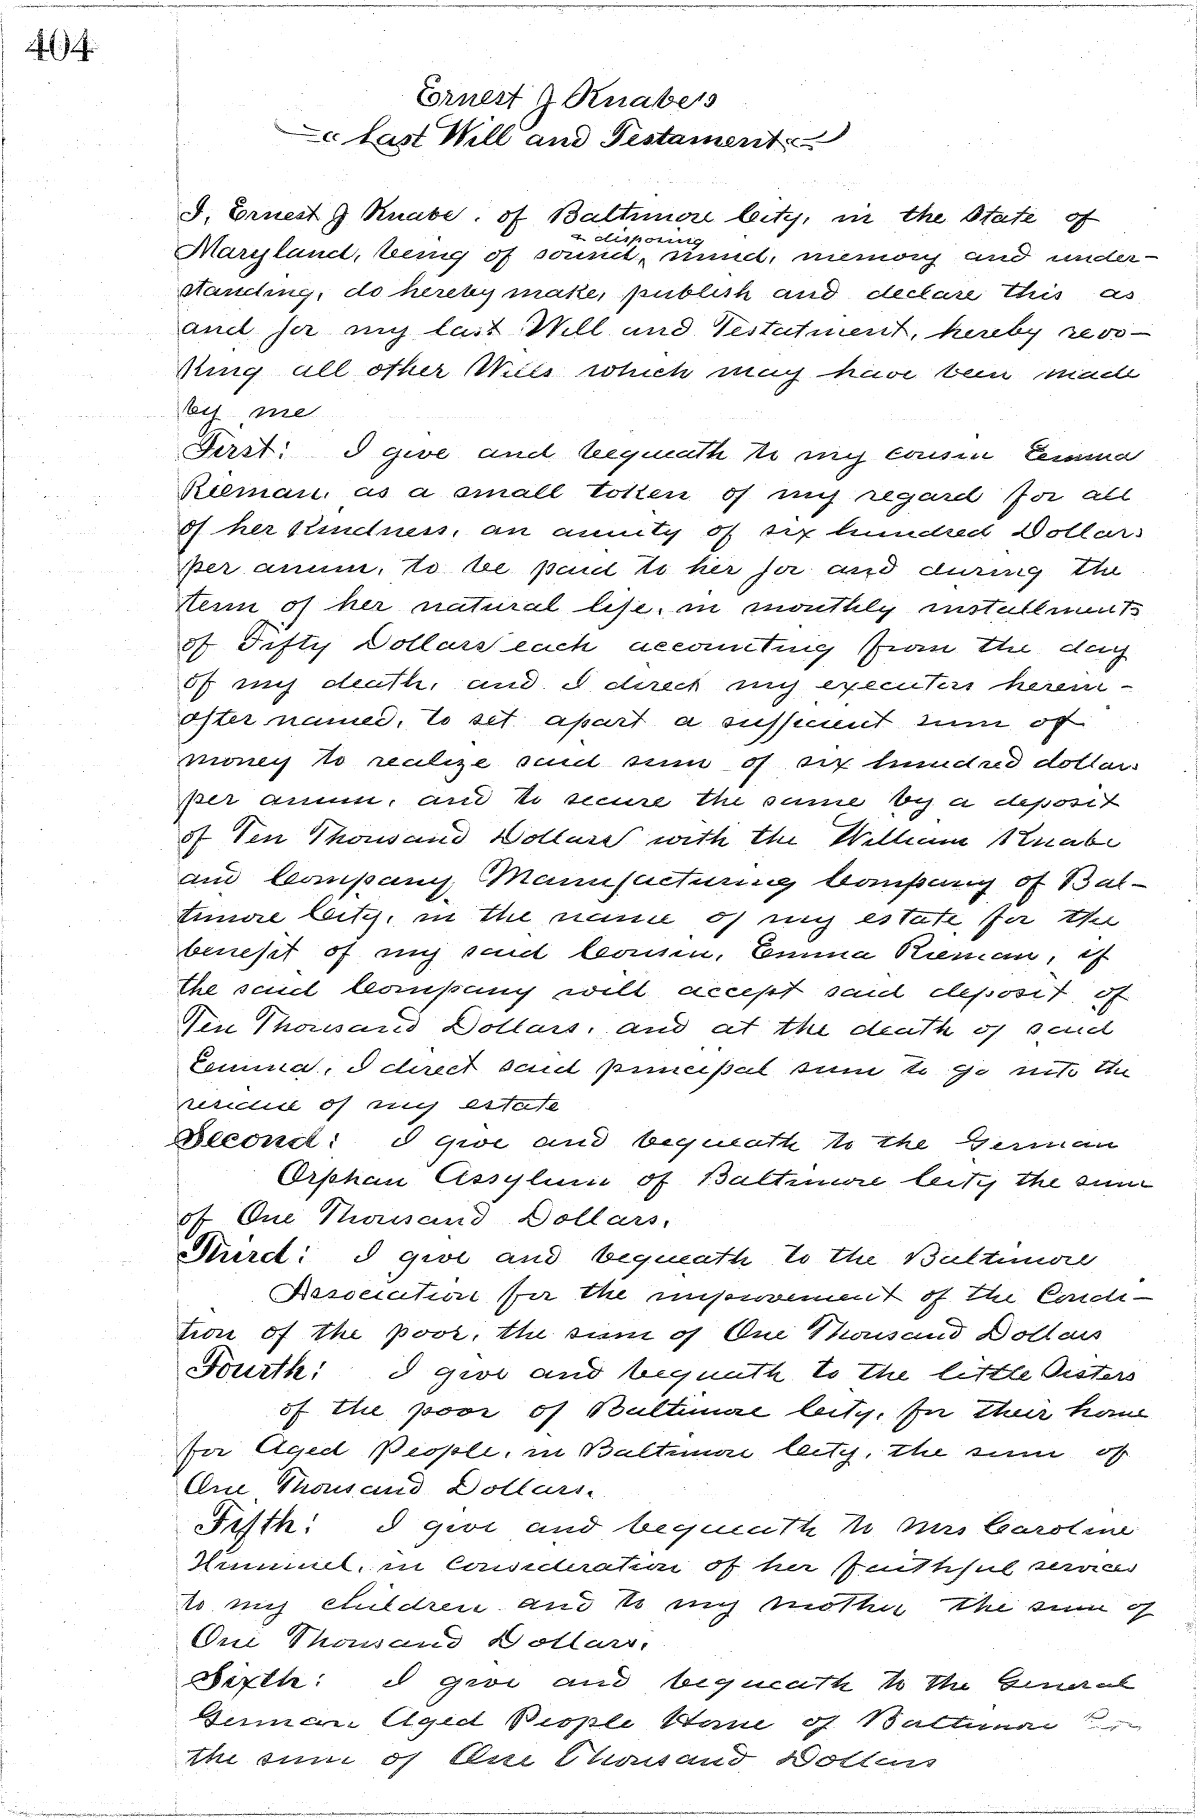 404
Ernest J Knabe's
Last Will and Testament
I, Ernest J Knabe. of Baltimore City, in the State of
& disposing
Maryland, being of sound, mind, memory and under-
standing, do hereby make, publish and declare this as
and for my last Will and Testatment, hereby revo-
king all other Wills which may have been made
by me
First: I give and bequeath to my cousin Emma
Rieman, as a small token of my regard for all
of her kindness, an anuity of six hundred Dollars
per anum, to be paid to her for and during the
term of her natural life, in monthly installments
of Fifty Dollars each accounting from the day
of my death, and I direct my executors herein-
after named, to set apart a sufficient sum of
money to realize said sum of six hundred dollars
per anum, and to secure the same by a deposit
of Ten Thousand Dollars with the William Knabe
and Company Manufacturing Company of Bal-
timore City, in the name of my estate for the
benefit of my said Cousin, Emma Rieman, if
the said Company will accept said deposit of
Ten Thousand Dollars, and at the death of said
Emma, I direct said principal sum to go into the
residue of my estate
Second: I give and bequeath to the German
Orphan Assylum of Baltimore City the sum
of One Thousand Dollars.
Third: I give and bequeath to the Baltimore
Association for the improvement of the Condi-
tion of the poor, the sum of One Thousand Dollars
Fourth: I give and bequath to the little Sisters
of the poor of Baltimore City, for their home
for Aged People, in Baltimore City, the sum of
One Thousand Dollars.
Fifth: I give and bequeath to Mrs Caroline
Hummel, in Consideration of her faithful services
to my children and to my mother the sum of
One Thousand Dollars.
Sixth: I give and bequeath to the General
German Aged People Home of Baltimore
the sum of One Thousand Dollars